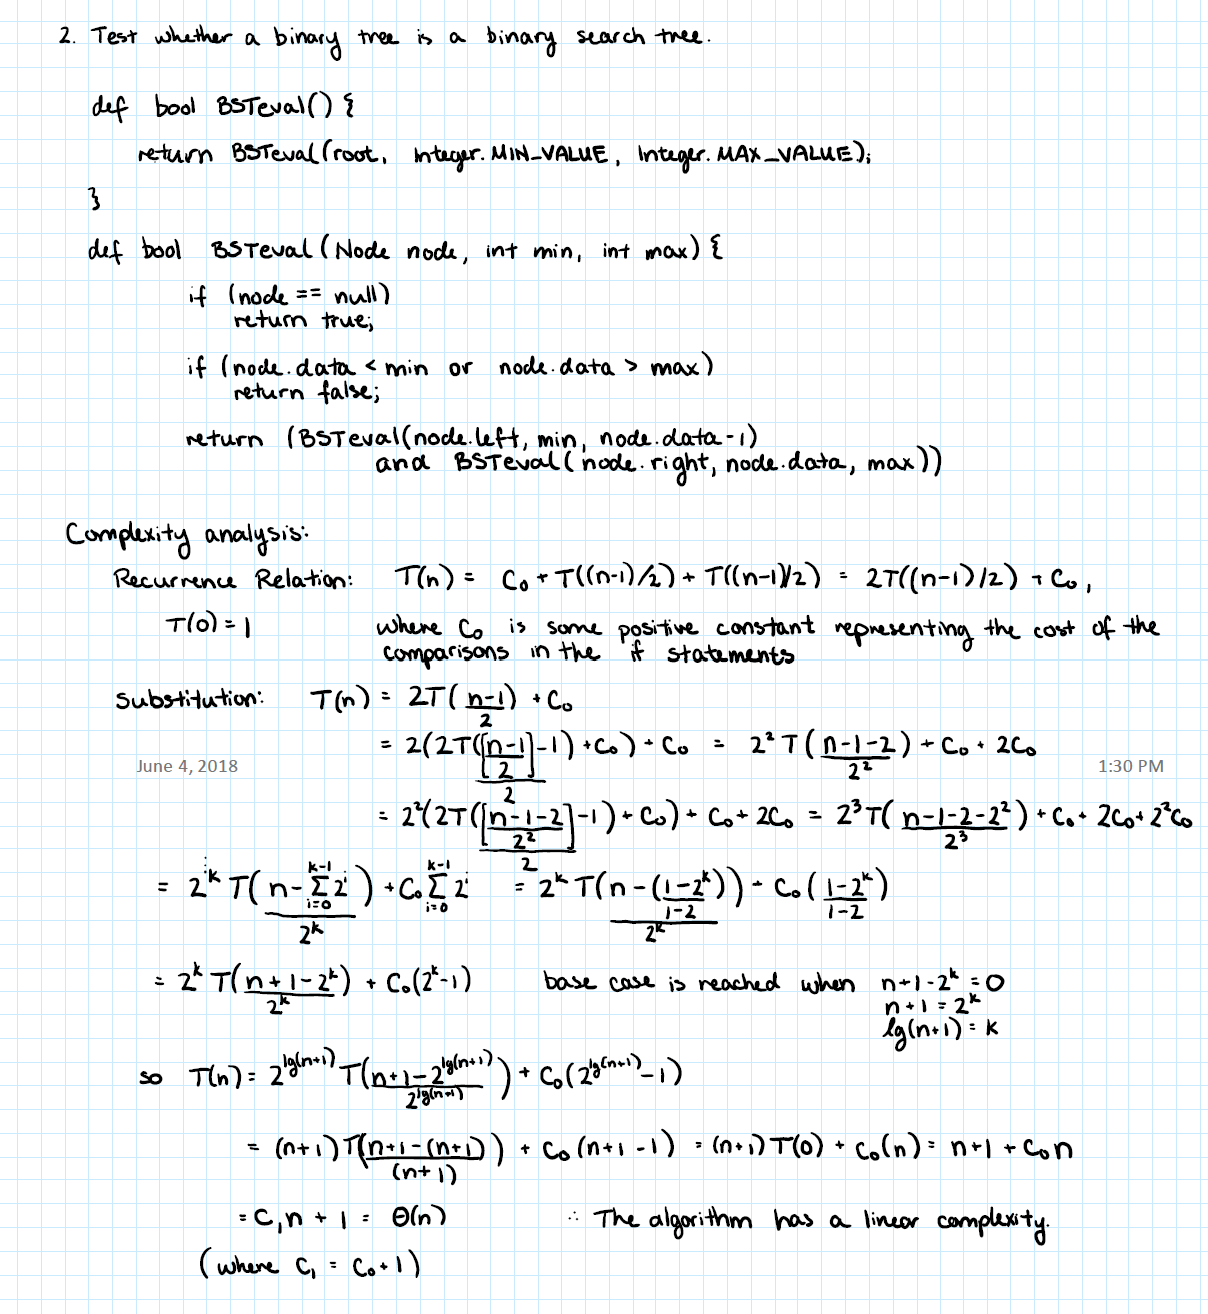 2. Test whether a binary tree is a binary search tree.
def bool BSTeval() {
return BSTeval(root, Integer.MIN_VALUE, Integer.MAX_VALUE);
}
def bool BSTeval (Node node, int min, int max) {
if (node == null)
return true;
if (node.data < min or node.data > max)
return false;
return (BSTeval(node.left, min, node.data-1)
and BSTeval(node.right, node.data, max))
Complexity analysis:
Recurrence Relation: T(n) = C₀ + T((n-1)/2) + T((n-1)/2) = 2T((n-1)/2) + C₀,
T(0) = 1 where C₀ is some positive constant representing the cost of the
comparisons in the if statements
Substitution: T(n) = 2T((n-1)/2) + C₀
= 2(2T(([(n-1)/2]-1)/2) + C₀) + C₀ = 2²T((n-1-2)/2²) + C₀ + 2C₀
June 4, 2018 1:30 PM
= 2²(2T(([(n-1-2)/2²]-1)/2) + C₀) + C₀ + 2C₀ = 2³T((n-1-2-2²)/2³) + C₀ + 2C₀ + 2²C₀
= 2ᵏ T((n-Σᵢ₌₀ᵏ⁻¹ 2ⁱ)/2ᵏ) + C₀ Σᵢ₌₀ᵏ⁻¹ 2ⁱ = 2ᵏ T((n-((1-2ᵏ)/(1-2)))/2ᵏ) + C₀((1-2ᵏ)/(1-2))
= 2ᵏ T((n+1-2ᵏ)/2ᵏ) + C₀(2ᵏ-1) base case is reached when n+1-2ᵏ = 0
n+1 = 2ᵏ
lg(n+1) = k
so T(n) = 2^lg(n+1) T((n+1-2^lg(n+1))/2^lg(n+1)) + C₀(2^lg(n+1) - 1)
= (n+1)T((n+1-(n+1))/(n+1)) + C₀(n+1-1) = (n+1)T(0) + C₀(n) = n+1 + C₀n
= C₁n + 1 = Θ(n) ∴ The algorithm has a linear complexity.
(where C₁ = C₀+1)